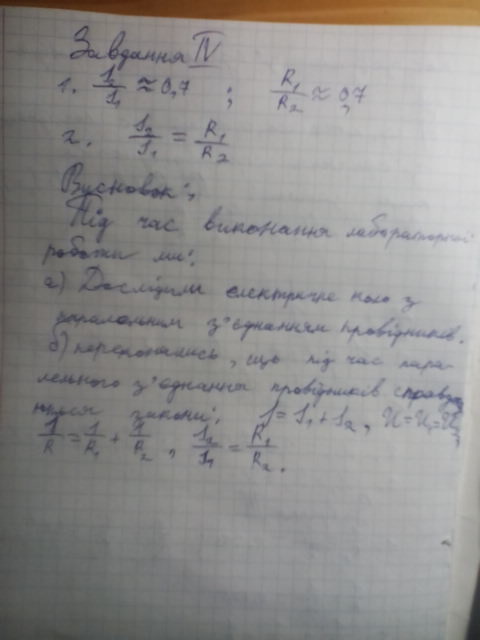 Завдання IV
1. I₂/I₁ ≈ 0,7 ; R₁/R₂ ≈ 0,7
2. I₂/I₁ = R₁/R₂
Вусновок:
Під час виконання лабораторної
роботи ми:
а) Дослідили електричне коло з
паралельним з'єднанням провідників.
б) переконались, що під час пара-
лельного з'єднання провідників справджу-
ються закони: I = I₁ + I₂, U = U₁ = U₂,
1/R = 1/R₁ + 1/R₂, I₂/I₁ = R₁/R₂.